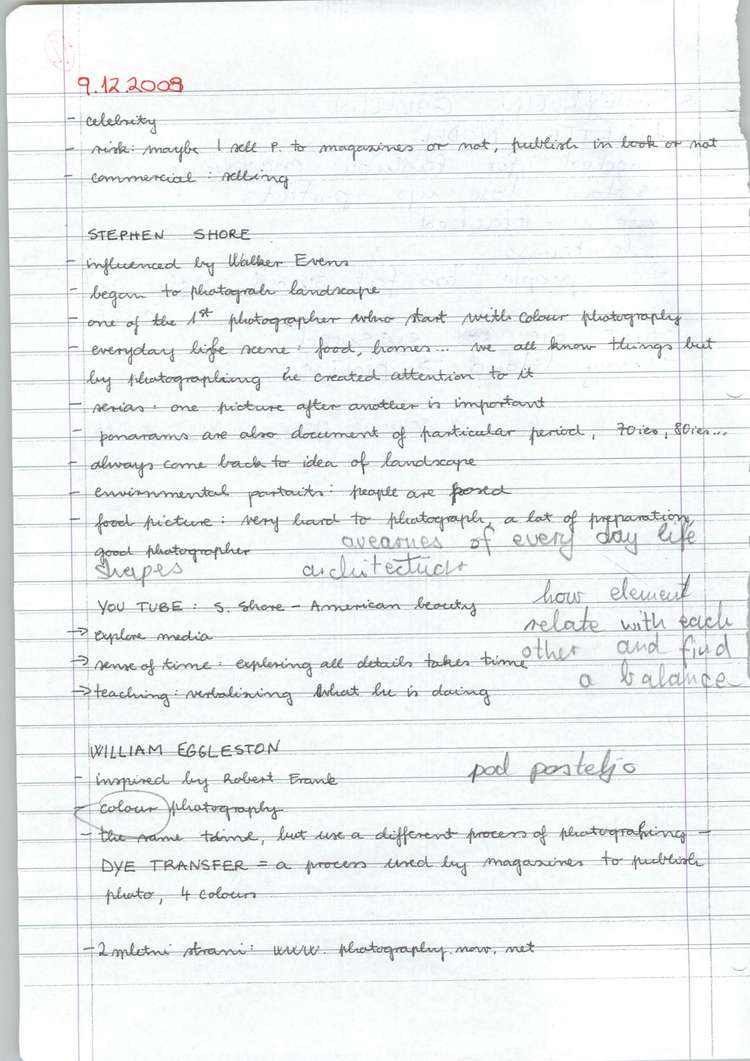 9.12.2009
- celebrity
- risk: maybe I sell P. to magazines or not, publish in book or not
- commercial: selling
STEPHEN SHORE
- influenced by Walker Evens
- began to photograh landscape
- one of the 1st photographer who start with colour photography
- everyday life scene: food, homes... we all know things but
by photographing he created attention to it
- serias: one picture after another is important
- panarams are also document of particular period, 70ies, 80ies...
- always come back to idea of landscape
- envirnmental partaits: people are posed
- food picture: very hard to photograph, a lot of preparation,
good photographer
avearnes of every day life
shapes architectur
YOU TUBE: S. Shore - American beauty
how element
→ explore media
relate with each
→ sense of time: exploring all details takes time
other and find
→ teaching: verbalining what he is doing
a balance
WILLIAM EGGLESTON
- inspired by Robert Frank
pod posteljo
- colour photography
- the same tdime, but use a different process of photograhing -
DYE TRANSFER = a process used by magazines to publish
photo, 4 colours
- 2 spletni strani: www.photography.now.net